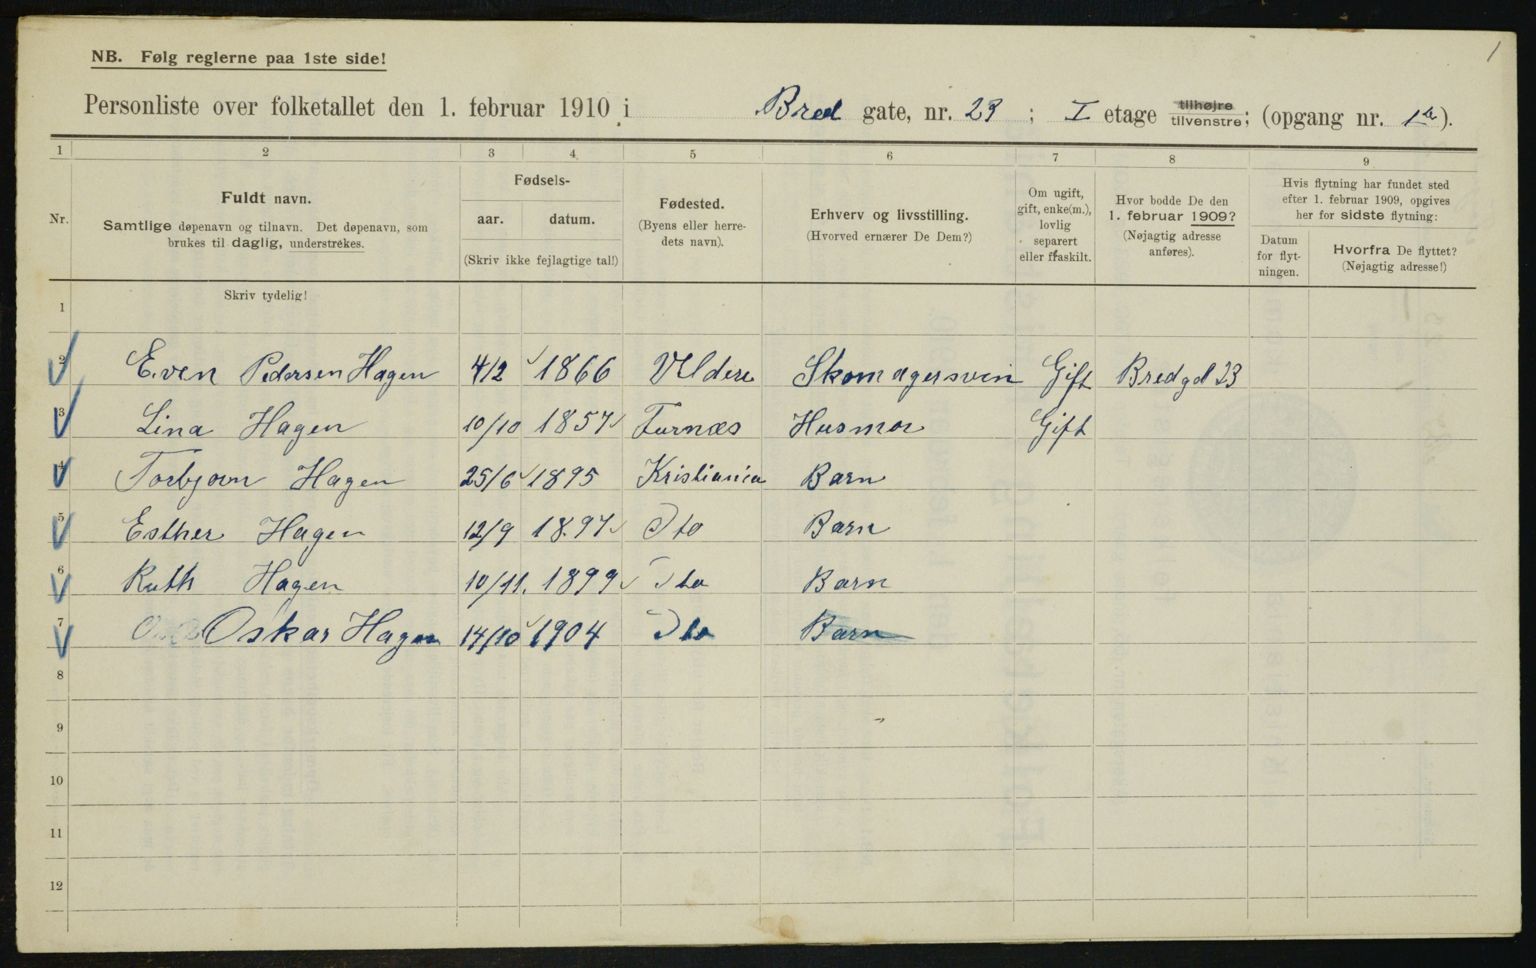 1
NB. Følg reglerne paa 1ste side!
Personliste over folketallet den 1. februar 1910 i Bred gate, nr. 23 ; I etage tilhøjre tilvenstre; (opgang nr. 1ste).
1 2 3 4 5 6 7 8 9
Nr.
Fuldt navn.
Samtlige døpenavn og tilnavn. Det døpenavn, som
brukes til daglig, understrekes.
Fødsels-
aar. datum.
(Skriv ikke fejlagtige tal!)
Fødested.
(Byens eller herre-
dets navn).
Erhverv og livsstilling.
(Hvorved ernærer De Dem?)
Om ugift,
gift, enke(m.),
lovlig
separert
eller fraskilt.
Hvor bodde De den
1. februar 1909?
(Nøjagtig adresse
anføres).
Hvis flytning har fundet sted
efter 1. februar 1909, opgives
her for sidste flytning:
Datum
for flyt-
ningen.
Hvorfra De flyttet?
(Nøjagtig adresse!)
Skriv tydelig!
1
2 Even Pedersen Hagen 4/2 1866 Skomagersven Gift Bredgd 23
3 Lina Hagen 10/10 1857 Furnæs Husmor Gift
4 Torbjorn Hagen 25/6 1895 Kristiania Barn
5 Esther Hagen 12/9 1897 Dto Barn
6 Ruth Hagen 10/11. 1899 Dto Barn
7 Oskar Hagen 14/10 1904 Dto Barn
8
9
10
11
12